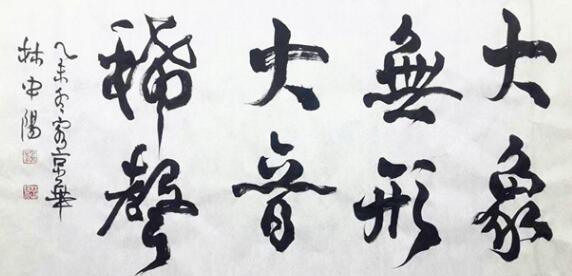 大象
無形
大音
稀聲
乙未冬客京華
林中陽